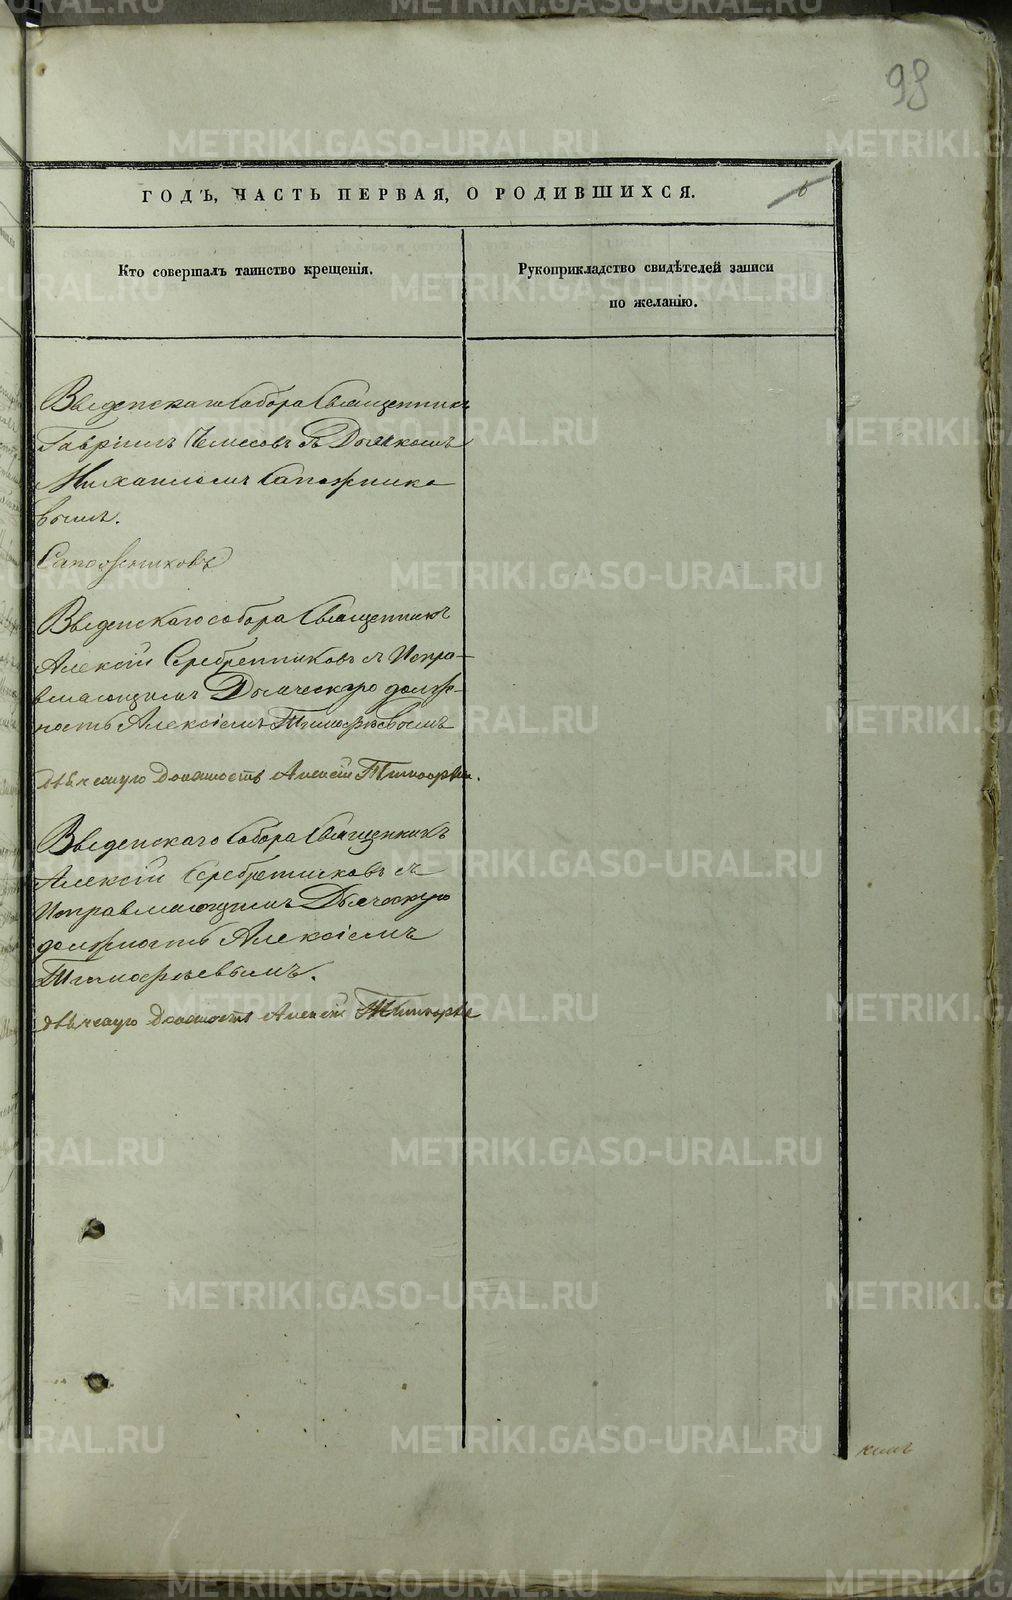 98
ГОДЪ, ЧАСТЬ ПЕРВАЯ, О РОДИВШИХСЯ.
6
Кто совершалъ таинство крещенія.
Рукоприкладство свидѣтелей записи
по желанію.
Введенскаго Собора Священникъ
Гавріилъ съ Дьячкомъ
Михаиломъ Сапожнико
вымъ.
Сапожниковъ
Введенскаго собора Священникъ
Алексій Серебренниковъ съ Испра-
вляющимъ Дьяческую долж-
ность Алексіемъ Тимофѣевымъ
дьяческую Должность Алексій Тимофѣев.
Введенскаго Собора Священникъ
Алексій Серебренниковъ съ
Исправляющимъ Дьяческую
должность Алексіемъ
Тимофѣевымъ.
дьяческую Должность Алексій Тимофѣе
METRIKI.GASO-URAL.RU